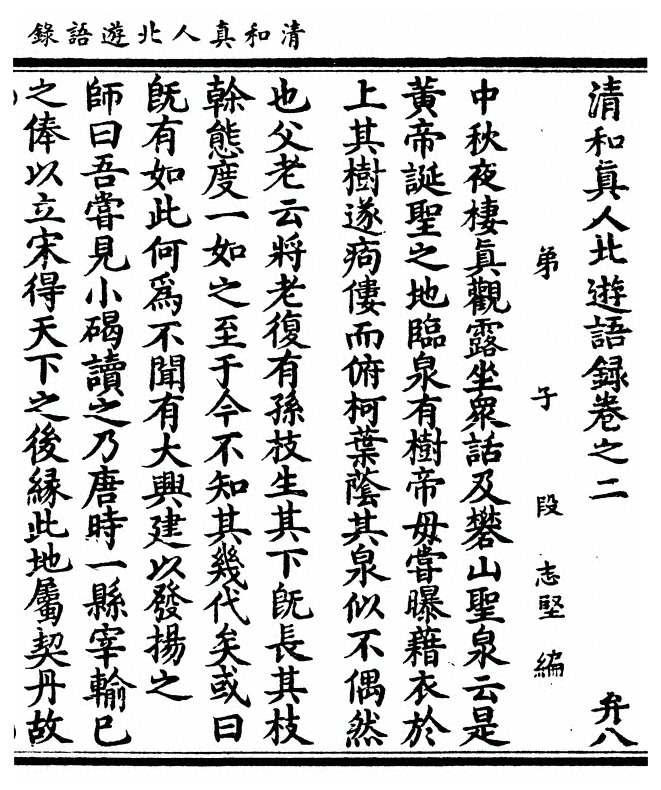 清和真人北遊語錄
清和眞人北遊語録卷之二 弁八
弟子段志堅編
中秋夜棲眞觀露坐衆話及礬山聖泉云是
黃帝誕聖之地臨泉有樹帝毋嘗曝藉衣於
上其樹遂痀僂而俯柯葉蔭其泉似不偶然
也父老云將老復有孫枝生其下旣長其枝
榦態度一如之至于今不知其幾代矣或曰
旣有如此何爲不聞有大興建以發揚之
師曰吾嘗見小碣讀之乃唐時一縣宰輸巳
之俸以立宋得天下之後縁此地屬契丹故